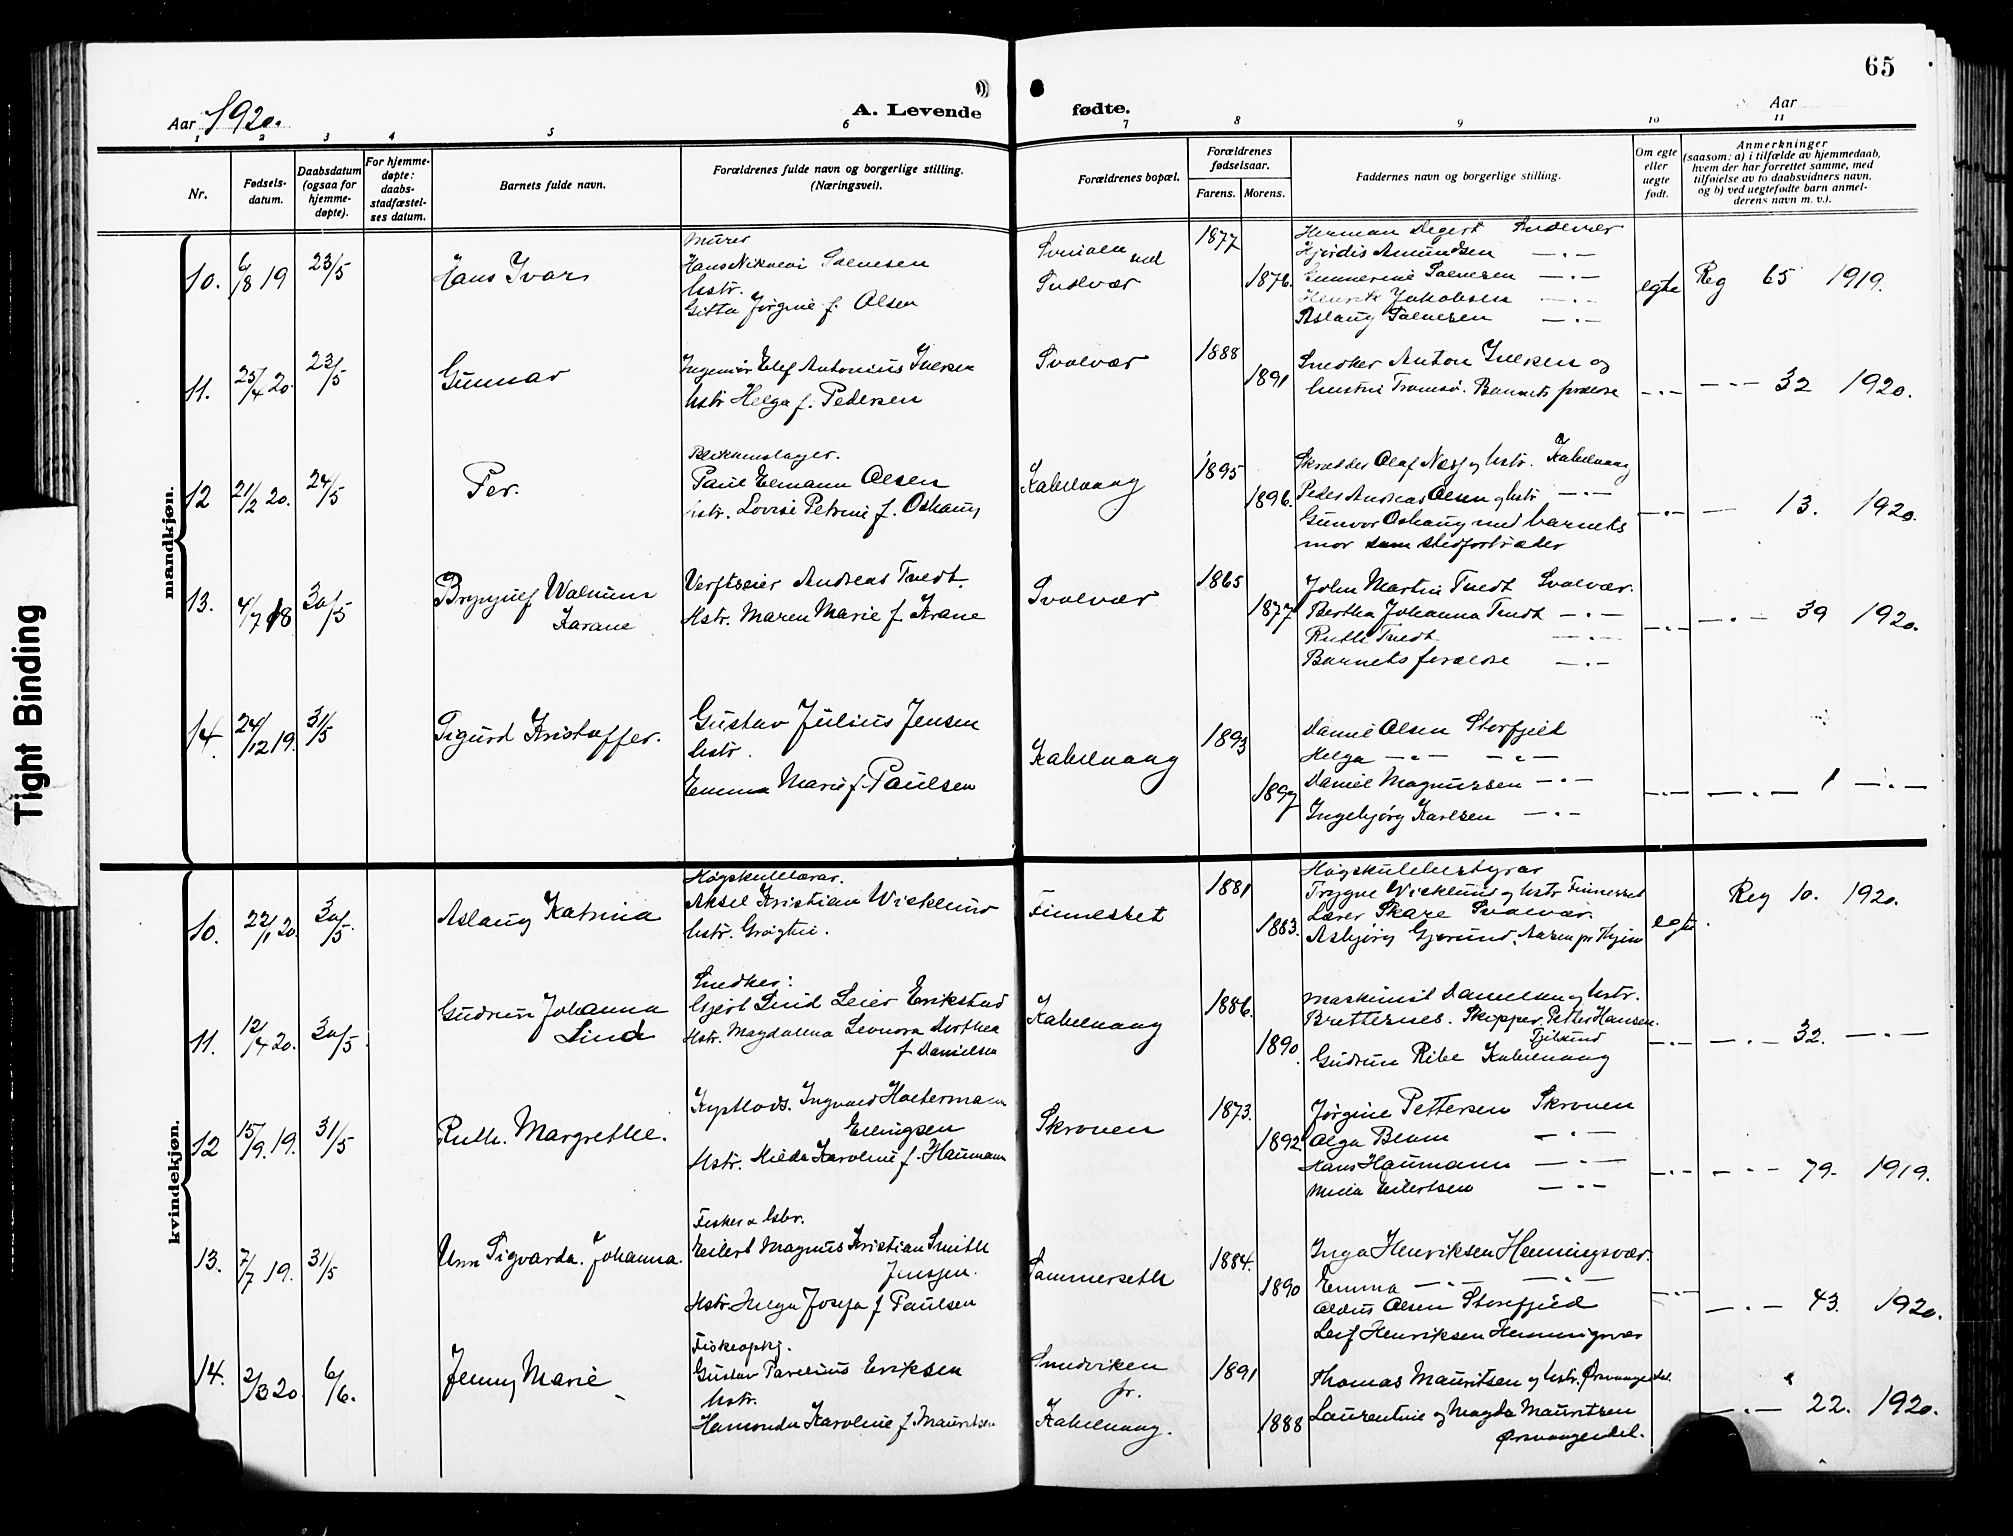 65
Aar 1920.
A. Levende fødte.
Aar
1 2 3 4 5 6 7 8 9 10 11
Nr.
Fødsels-
datum.
Daabsdatum
(ogsaa for
hjemme-
døpte).
For hjemme-
døpte:
daabs-
stadfæstel-
ses datum.
Barnets fulde navn.
Forældrenes fulde navn og borgerlige stilling.
(Næringsvei).
Forældrenes bopæl.
Forældrenes
fødselsaar.
Farens. Morens.
Faddernes navn og borgerlige stilling.
Om egte
eller
uegte
født.
Anmerkninger
(saasom: a) i tilfælde av hjemmedaab,
hvem der har forrettet samme, med
tilføielse av to daabsvidners navn,
og b) ved uegtefødte barn anmel-
derens navn m. v.).
Tight Binding
mandkjøn.
10. 6/8 19 23/5 Hans Ivar
Murer
Hans Nikolai
hstr.
Gitta Jørgine f. Olsen
Svolvær
1877
1876.
Herman Degert
Hjørdis Amundsen — " —
— " —
Henrik Jakobsen — " —
Aslaug — " —
egte
Reg 65 1919.
11. 25/4 20. 23/5 Gunnar
Ingeniør Elef Antonius Iversen
hstr Helga f. Pedersen
Svolvær
1888
1891
Snedker Anton Iversen og
hustru Tromsø. Barnets forældre
— " —
— " — 32 1920.
12 21/2 20. 24/5 Per.
Blikkenslager.
Paul Elmann Olsen
hstr. Lovise Petrine f. Oshaug
Kabelvaag
1895
1896.
Skrædder Olaf Næss og hstr. Kabelvaag
Peder Andreas Olsen og hstr — " —
Gunvor Oshaug med barnets
mor som stedfortræder
— " —
— 13. 1920.
13. 4/7 18 30/5 Brynjulf Walnum
Karane
Verftseier Andreas Tvedt
Hstr. Maren Marie f. Krane
Svolvær
1865
1877
John Martin Tvedt Svolvær.
Bertha Johanna Tvedt — " —
Ruth Tvedt — " —
Barnets forældre — " —
— " —
— " — 39 1920.
14. 24/12 19. 31/5 Sigurd Kristoffer.
Gustav Julius Jensen
hstr.
Emma Marie f. Paulsen
Kabelvaag
1893
1897
Daniel Olsen Storfjeld
Helga — " — — " —
Daniel Magnussen — " —
Ingebjørg Karlsen — " —
— " —
— " — 1 — " —
kvindekjøn.
10. 22/1 20. 30/5 Aslaug Katrina
Høgskulelærar.
Aksel Kristian Wicklund
hstr.
Finneset
1881
1883.
Høgskulebestyrar
Trygve Wicklund og hstr Finneset
Lærer Skare Svolvær.
Asbjørg
egte.
Reg 10. 1920.
11. 12/4 20. 30/5 Gudrun Johanna
Lind
Snedker:
Gjert Lind Leier Erikstad
Hstr. Magdalena Leonora Dorthea
f Danielsen
Kabelvaag
1886.
1890.
Maskinist Danielsen og hstr.
Brettesnes. Skipper. Petter Hansen.
Gudrun Ribe Kabelvaag
— " —
— " — 32. — " —
12 15/9. 19. 31/5 Ruth. Margrethe.
Ingvald Haltermann
Ellingsen
Hstr. Hilda Karoline f. Haumann
Skroven
1873.
1892.
Jørgine Pettersen Skroven
Olga Beam — " —
Hans Haumann — " —
Eilertsen — " —
— " —
— " — 79. 1919.
13. 7/7 19. 31/5 Unn Sigvarda. Johanna.
Fisker &
Eilert Magnus Kristian Smith
Jensen.
Hstr. Helga Josefa f Paulsen
Sammerseth
1884.
1890
Inga Henriksen Henningsvær.
Emma — " — — " —
Olsen Storfjeld
Leif Henriksen Henningsvær
— " —
— " — 43. 1920.
14. 2/3 20. 6/6. Jenny Marie
Fiskeopkj.
Gustav Parelius Eriksen
hstr.
Hamonda Karoline f Mauritsen
Sandviken
pr.
Kabelvaag.
1891
1888
Thomas Mauritsen og hstr. Ørsvaagendal.
Laurentine og Magda Mauritsen
Ørsvaagendal.
— " — 22. 1920.